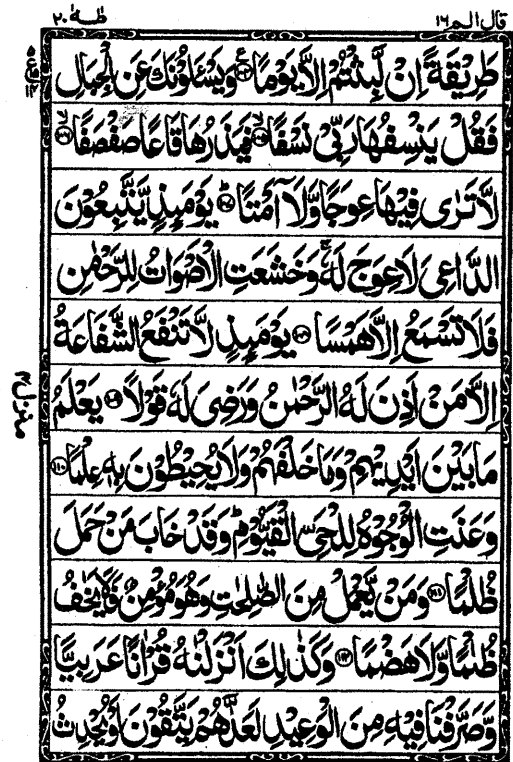 قال الم ١٦
طٰهٰ ٢٠
طَرِيْقَةً اِنْ لَّبِثْتُمْ اِلَّا يَوْمًا ۝١٠٤ وَيَسْـَٔلُوْنَكَ عَنِ الْجِبَالِ
فَقُلْ يَنْسِفُهَا رَبِّيْ نَسْفًا ۝١٠٥ فَيَذَرُهَا قَاعًا صَفْصَفًا ۝١٠٦
لَّا تَرٰى فِيْهَا عِوَجًا وَّلَآ اَمْتًا ۝١٠٧ يَوْمَئِذٍ يَّتَّبِعُوْنَ
الدَّاعِيَ لَا عِوَجَ لَهٗ وَخَشَعَتِ الْاَصْوَاتُ لِلرَّحْمٰنِ
فَلَا تَسْمَعُ اِلَّا هَمْسًا ۝١٠٨ يَوْمَئِذٍ لَّا تَنْفَعُ الشَّفَاعَةُ
اِلَّا مَنْ اَذِنَ لَهُ الرَّحْمٰنُ وَرَضِيَ لَهٗ قَوْلًا ۝١٠٩ يَعْلَمُ
مَا بَيْنَ اَيْدِيْهِمْ وَمَا خَلْفَهُمْ وَلَا يُحِيْطُوْنَ بِهٖ عِلْمًا ۝١١٠
وَعَنَتِ الْوُجُوْهُ لِلْحَيِّ الْقَيُّوْمِ ؕ وَقَدْ خَابَ مَنْ حَمَلَ
ظُلْمًا ۝١١١ وَمَنْ يَّعْمَلْ مِنَ الصّٰلِحٰتِ وَهُوَ مُؤْمِنٌ فَلَا يَخٰفُ
ظُلْمًا وَّلَا هَضْمًا ۝١١٢ وَكَذٰلِكَ اَنْزَلْنٰهُ قُرْاٰنًا عَرَبِيًّا
وَّصَرَّفْنَا فِيْهِ مِنَ الْوَعِيْدِ لَعَلَّهُمْ يَتَّقُوْنَ اَوْ يُحْدِثُ
منزل ٤